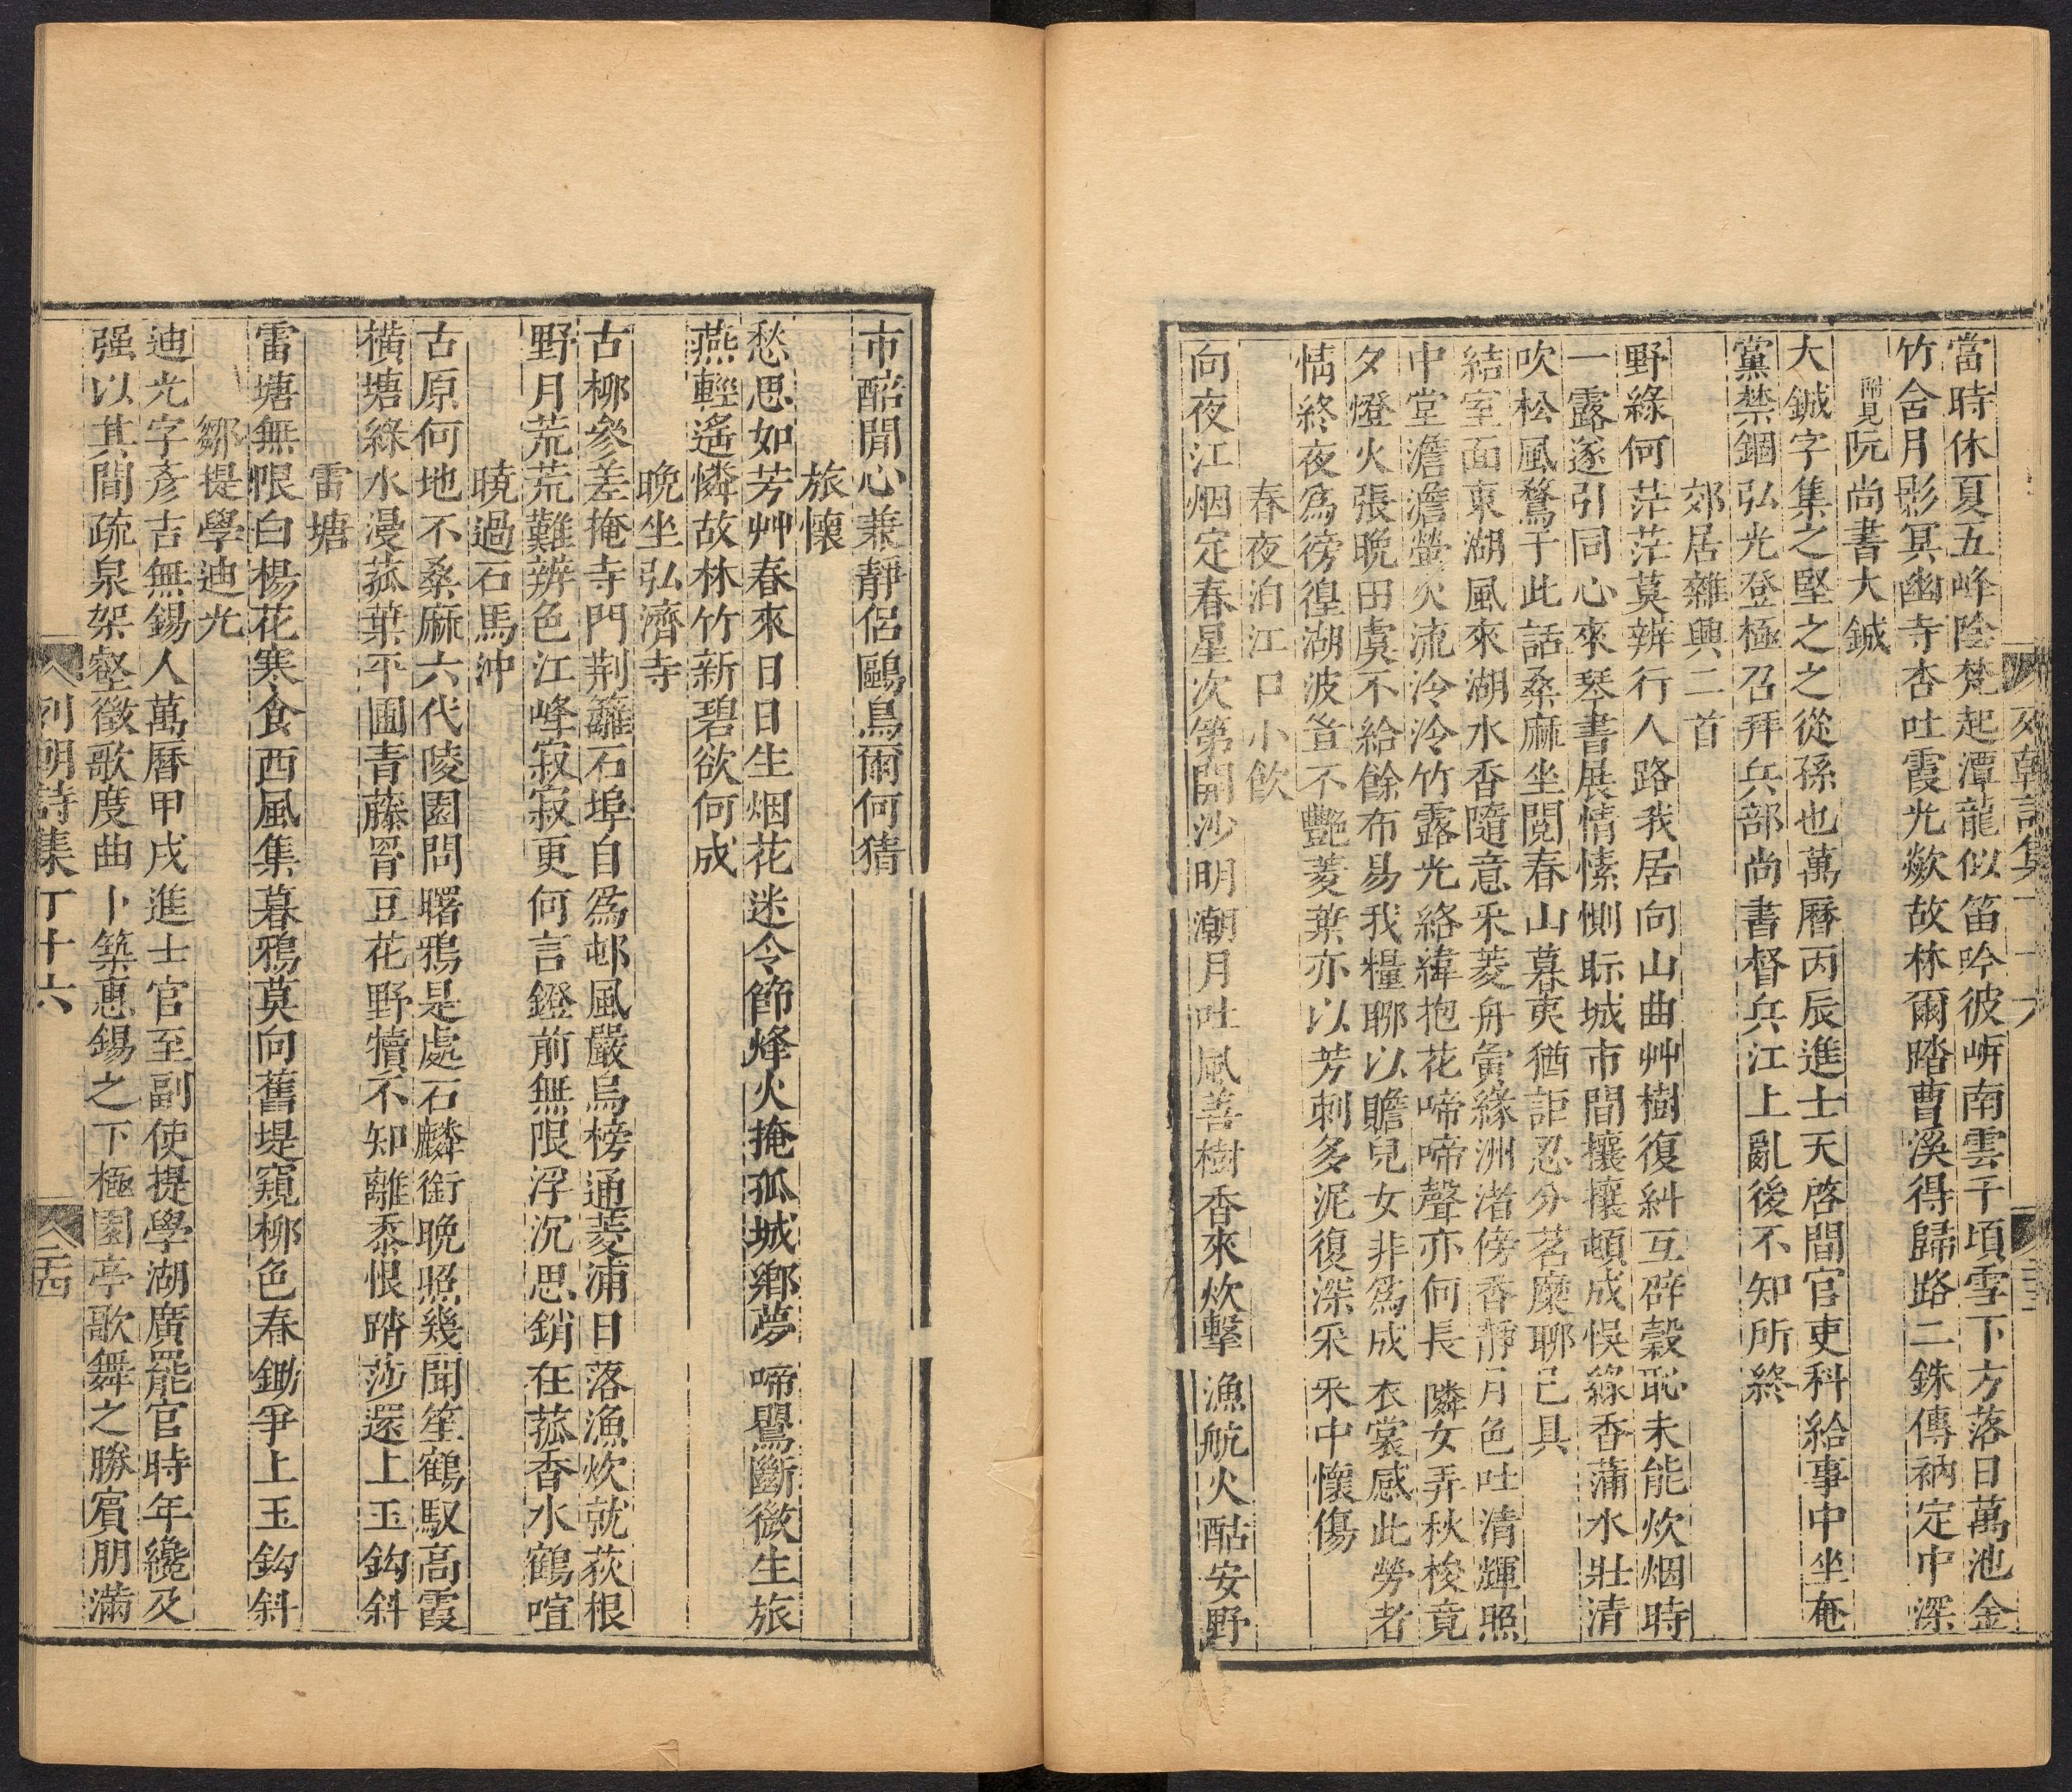 列朝詩集丁十六
當時休夏五峰陰梵起潭龍似笛吟彼岍南雲千頃雪下方落日萬池金
竹含月影冥幽寺杏吐霞光歘故林爾踏曹溪得歸路二銖傳衲定中深
附見阮尚書大鋮
大鋮字集之堅之之從孫也萬曆丙辰進士天啓間官吏科給事中坐奄
黨禁錮弘光登極召拜兵部尚書督兵江上亂後不知所終
郊居雜興二首
野綠何茫茫莫辨行人路我居向山曲艸樹復糾互辟穀恥未能炊烟時
一露遂引同心來琴書展情愫惻眎城市間攘攘頓成悞綠香蒲水壯清
吹松風鶩于此話桑麻坐閱春山暮夷猶詎忍分茗糜聊已具
結室面東湖風來湖水香隨意采菱舟夤緣洲渚傍香靜月色吐清輝照
中堂澹澹螢火流泠泠竹露光絡緯抱花啼啼聲亦何長隣女弄秋梭竟
夕燈火張晚田虞不給餘布易我糧聊以贍兒女非爲成衣裳感此勞者
情終夜爲徬徨湖波豈不艷菱葉亦以芳刺多泥復深采采中懷傷
春夜泊江口小飲
向夜江烟定春星次第開沙明潮月吐風善樹香來炊擊漁航火酤安野
市醅閒心兼靜侶鷗鳥爾何猜
旅懷
愁思如芳艸春來日日生烟花迷令節烽火掩孤城鄉夢啼鶯斷微生旅
燕輕遙憐故林竹新碧欲何成
晚坐弘濟寺
古柳參差掩寺門荆籬石埠自爲邨風嚴烏榜通菱浦日落漁炊就荻根
野月荒荒難辨色江峰寂寂更何言鐙前無限浮沉思銷在菰香水鶴喧
曉過石馬沖
古原何地不桑麻六代陵園問曙鴉是處石麟銜晚照幾聞笙鶴馭高霞
橫塘綠水漫菰葉平圃青藤罥豆花野犢不知離黍恨踏莎還上玉鈎斜
雷塘
雷塘無恨白楊花寒食西風集暮鴉莫向舊堤窺柳色春鋤爭上玉鈎斜
鄒提學迪光
迪光字彥吉無錫人萬曆甲戌進士官至副使提學湖廣罷官時年纔及
强以其間疏泉架壑徵歌度曲卜築惠錫之下極園亭歌舞之勝賓朋滿
列朝詩集丁十六
二十四